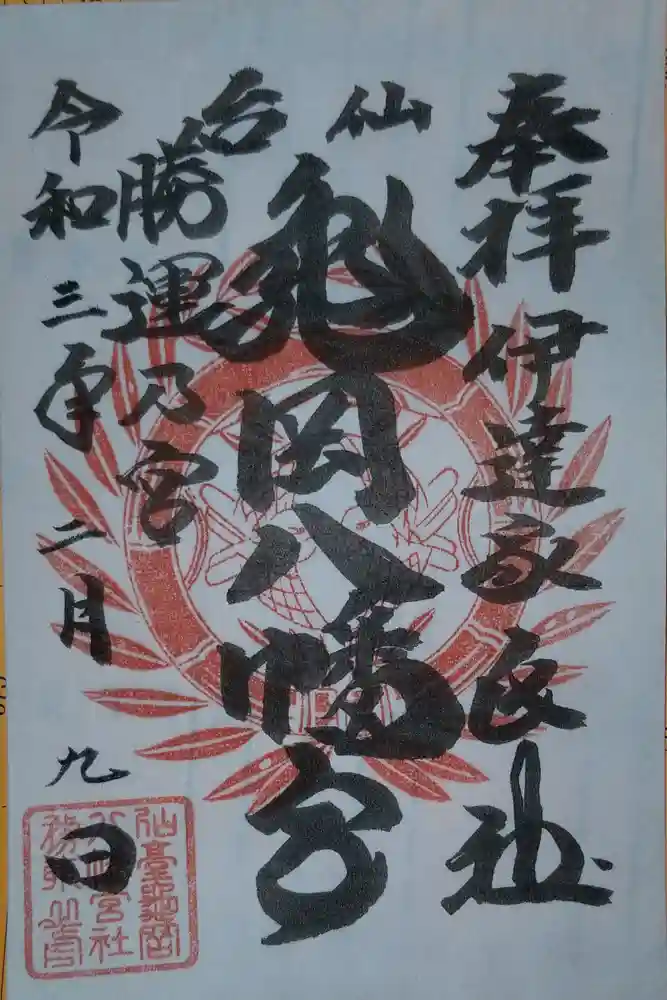 奉拝 伊達家氏社
仙台
亀岡八幡宮
勝運乃宮
令和三年二月九日